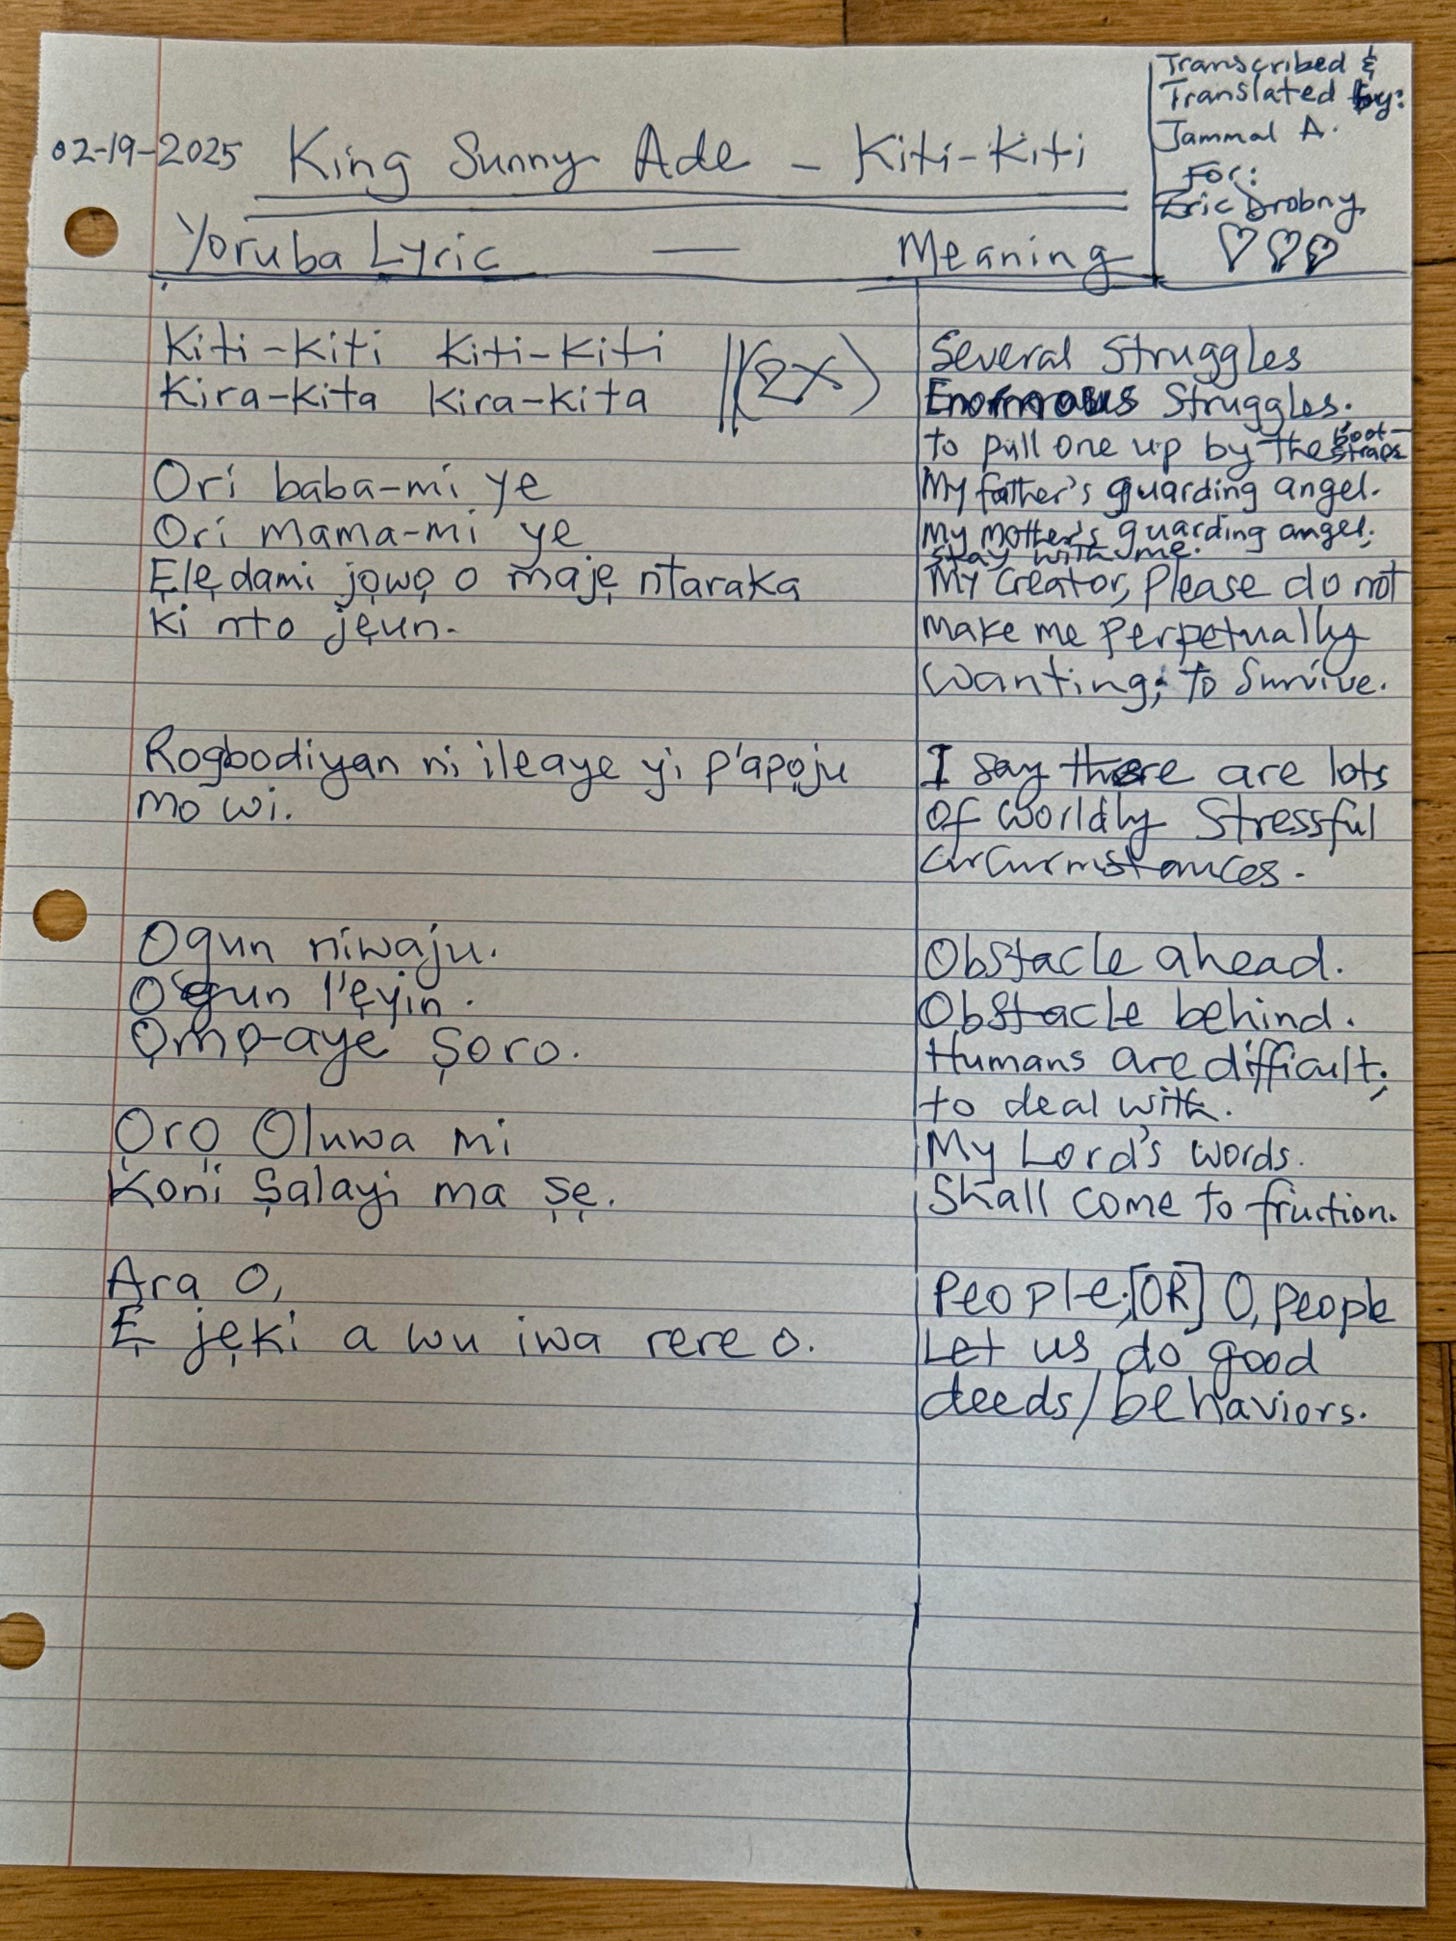 Transcribed &
Translated by:
Jammal A.
For:
Eric Drobny
02-19-2025 King Sunny Ade - Kiti-Kiti
Yoruba Lyric — Meaning
Kiti-Kiti Kiti-Kiti
Kira-Kita Kira-Kita
(2X)
Ori baba-mi ye
Ori mama-mi ye
Ẹlẹdami jọwọ o maje ntaraka
Ki nto jẹun.
Rogbodiyan ni ileaye yi p'apọju
mo wi.
Ogun niwaju.
Ogun l'ẹyin.
Ọmọ-aye Ṣoro.
Ọrọ Oluwa mi
Koni Ṣalayi ma ṣẹ.
Ara O,
Ẹ jẹki a wu iwa rere o.
Several Struggles
Enormous Struggles.
to pull one up by the boot-
straps
My father's guarding angel.
My mother's guarding angel;
stay with me.
My Creator, Please do not
make me perpetually
wanting; to Survive.
I say there are lots
of worldly Stressful
circumstances.
Obstacle ahead.
Obstacle behind.
Humans are difficult;
to deal with.
My Lord's words.
Shall come to fruition.
People;[OR] O, people
Let us do good
deeds/behaviors.